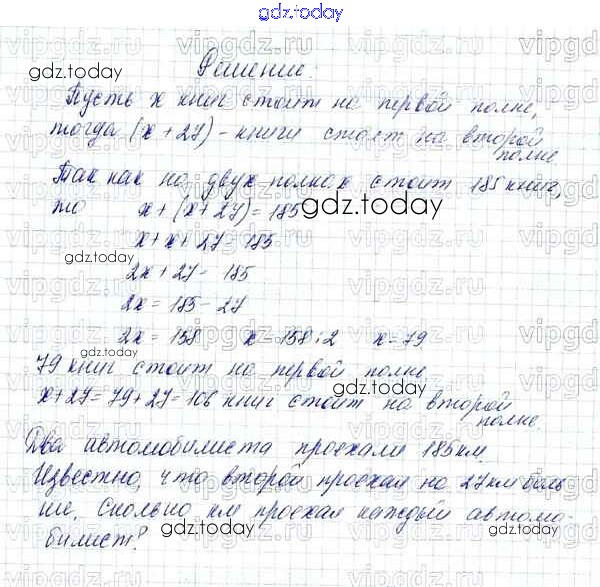 gdz.today
Решение:
Пусть x книг стоит на первой полке,
тогда (x + 27) - книги стоят на второй
полке
Так как на двух полках стоит 185 книг,
то x + (x + 27) = 185
x + x + 27 = 185
2x + 27 = 185
2x = 185 - 27
2x = 158 x = 158 : 2 x = 79
79 книг стоит на первой полке
x + 27 = 79 + 27 = 106 книг стоит на второй
полке.
Два автомобилиста проехали 185 км.
Известно, что второй проехал на 27 км боль-
ше. Сколько км проехал каждый автомо-
билист?